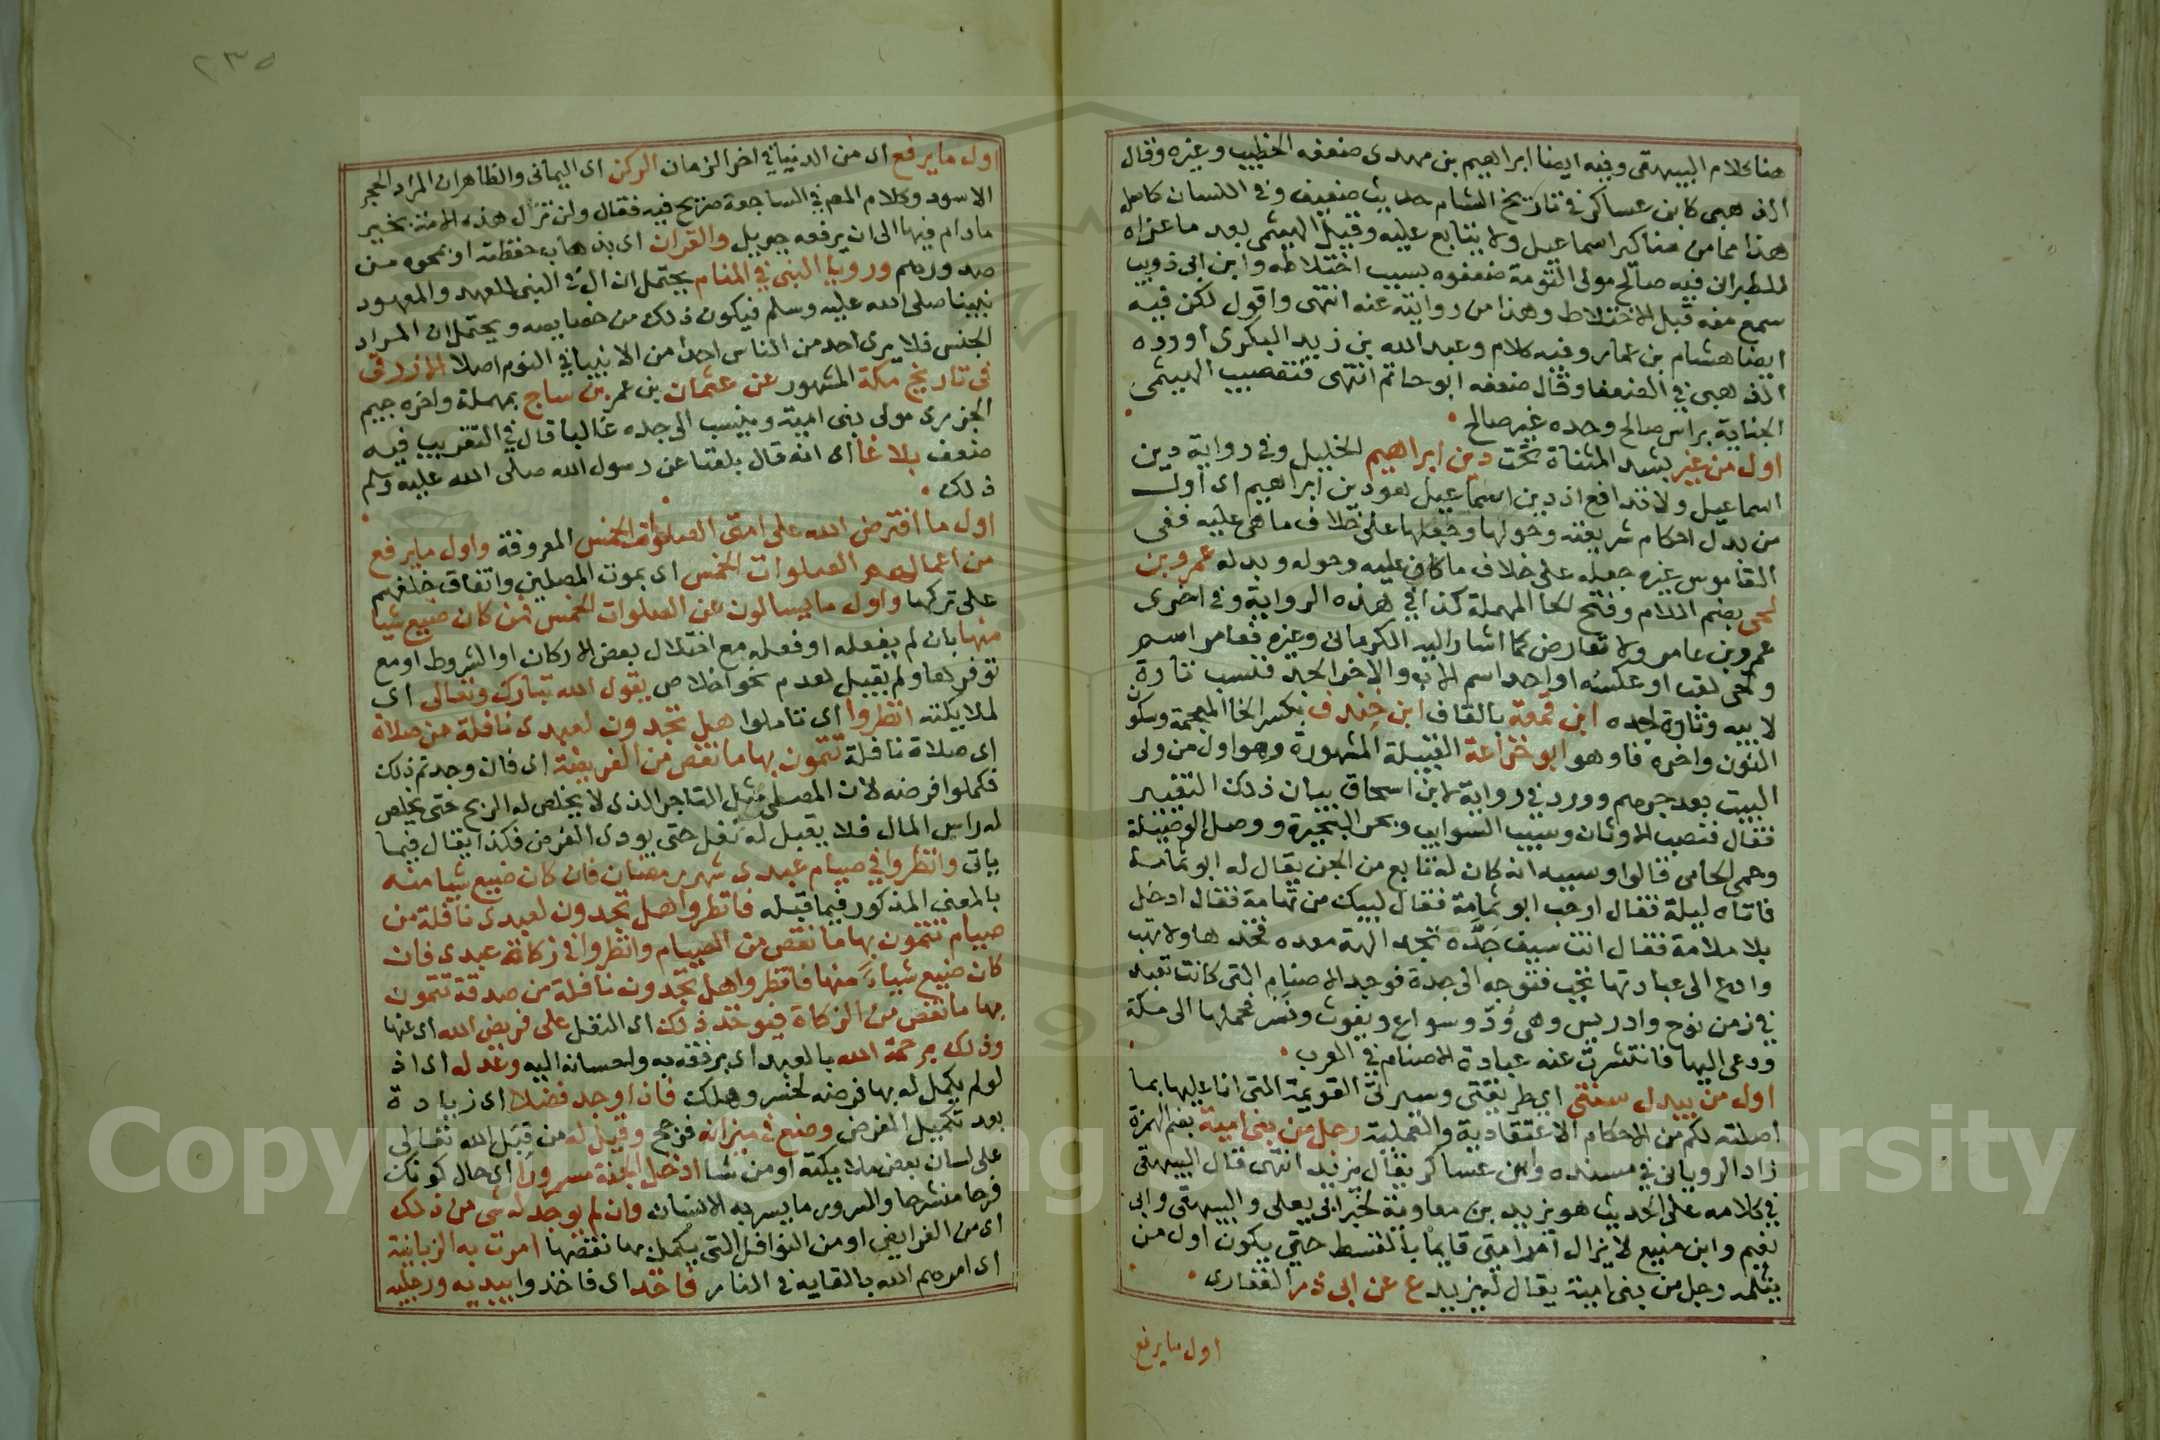 هنا كلام البيهقى وفيه ايضا ابراهيم بن مهدى ضعفه الخطيب وغيره وقال
الذهبى كابن عساكر فى تاريخ الشام حديث ضعيف وفى اللسان كاصله
هذا مما من مناكير اسماعيل ولا يتابع عليه وقيل الهيثمى بعد ما عزاه
للطبرانى فيه صالح مولى التومة ضعفوه بسبب اختلاطه وابن ابى ذويب
سمع منه قبل الاختلاط وهذا من روايته عنه انتهى واقول لكن فيه
ايضا هشام بن عمار وفيه كلام وعبد الله بن زيد البكرى اورده
الذهبى فى الضعفا وقال ضعفه ابو حاتم انتهى فتعصيب الهيثمى
الجناية براس صالح وحده غير صالح
اول من غير بشد المثناة تحت دين ابراهيم الخليل وفى رواية دين
اسماعيل ولا تدافع اذ دين اسماعيل هو دين ابراهيم اى اول
من بدل احكام شريعته وحولها وجعلها على خلاف ما هى عليه ففى
القاموس غيره جعله على خلاف ما كان عليه وحوله وبدله عمرو بن
لحى بضم اللام وفتح الحا المهملة كذا فى هذه الرواية وفى اخرى
عمرو بن عامر ولا تعارض كما اشار اليه الكرمانى وغيره فعامر اسم
ولحى لقب او عكسه او احد اسم الاب والاخر الجد فنسب تارة
لابيه وتارة لجده ابن قمعة بالقاف ابن خندف بكسر الخا المعجمة وسكون
النون واخره فا وهو ابو خزاعة القبيلة المشهورة وهو اول من ولى
البيت بعد جرهم وورد فى رواية لابن اسحاق بيان ذلك التغيير
فقال فنصب الاوثان وسيب السوايب وبحر البحيرة ووصل الوصيلة
وحمى الحامى قالوا وسببه انه كان له تابع من الجن يقال له ابو ثمامة
فاتاه ليلة فقال ارحب ابو ثمامة فقال لبيك من تهامة فقال ادخل
بلا ملامة فقال ائت سيف جدة تجد الهة معده فخذها ولا تهب
وادع الى عبادتها تجب فتوجه الى جدة فوجد الاصنام التى كانت تعبد
فى زمن نوح وادريس وهى ود وسواع ويغوث ونسر فحملها الى مكة
ودعى اليها فانتشرت عنه عبادة الاصنام فى العرب
اول من يبدل سنتى اى طريقتى وسيرتى القويمة التى انا عليها بما
اصلته لكم من الاحكام الاعتقادية والعملية رجل من بنى امية بضم الهمزة
زاد الرويانى فى مسنده وابن عساكر يقال يزيد انتهى قال البيهقى
فى كلامه على الحديث هو يزيد بن معاوية لخبر ابى يعلى والبيهقى وابى
نعيم وابن منيع لا يزال امر امتى قايما بالقسط حتى يكون اول من
يثلمه رجل من بنى امية يقال له يزيد ع عن ابى ذر الغفارى
اول ما يرفع
٢٣٥
اول ما يرفع اى من الدنيا فى اخر الزمان الركن اى اليمانى والظاهر ان المراد الحجر
الاسود وكلام المص فى الساجعة صريح فيه فقال ولن تزال هذه الامة بخير
ما دام فيها الى ان يرفعه جبريل والقران اى بذهاب حفظته او بمحوه من
صدورهم ورويا النبى فى المنام يحتمل ان ال فى النبى للعهد والمعهود
نبينا صلى الله عليه وسلم فيكون ذلك من خصايصه ويحتمل ان المراد
الجنس فلا يرى احد من الناس احدا من الانبيا فى النوم اصلا الازرقى
فى تاريخ مكة المشهور عن عثمان بن عمر بن ساج بمهملة واخره جيم
الجزرى مولى بنى امية وينسب الى جده غالبا قال فى التقريب فيه
ضعف بلاغا اى انه قال بلغنا عن رسول الله صلى الله عليه وسلم
ذلك
اول ما افترض الله على امتى الصلوات الخمس المعروفة واول ما يرفع
من اعمالهم الصلوات الخمس اى بموت المصلين واتفاق خلفهم
على تركها واول ما يسالون عن الصلوات الخمس فمن كان ضيع شيا
منها بان لم يفعله او فعله مع اختلال بعض الاركان او الشروط او مع
توفرها ولم يقبل لعدم نحو اخلاص يقول الله تبارك وتعالى اى
لملايكته انظروا اى تاملوا هل تجدون لعبدى نافلة من صلاة
اى صلاة نافلة تتمون بها ما نقص من الفريضة اى فان وجدتم ذلك
فكملوا فرضه لان المصلى مثل التاجر الذى لا يخلص له الربح حتى يخلص
له راس المال فلا يقبل له نفل حتى يودى الفرض فكذا يقال فيما
ياتى وانظروا فى صيام عبدى شهر رمضان فان كان ضيع شيا منه
بالمعنى المذكور فيما قبله فانظروا هل تجدون لعبدى نافلة من
صيام تتمون بها ما نقص من الصيام وانظروا فى زكاة عبدى فان
كان ضيع شياء منها فانظروا هل تجدون نافلة من صدقة تتمون
بها ما نقص من الزكاة فيوخذ ذلك اى النفل على فريض الله اى عنها
وذلك برحمة الله بالعبد اى برفقه به واحسانه اليه وعدله اى اذ
لو لم يكمل له بها فرضه لخسر وهلك فان اوجد فضلا اى زيادة
بعد تكميل الفرض وضع فى ميزانه فرجح وقيل له من قبل الله تعالى
على لسان بعض ملايكته او من شا ادخل الجنة مسرورا اى حال كونك
فرحا منشرحا والسرور ما يسر به الانسان وان لم يوجد له شى من ذلك
اى من الفرايض او من النوافل التى يكمل بها نقصها امرت به الزبانية
اى امرهم الله بالقايه فى النار فاخذ اى فاخذوا بيديه ورجليه
Copyright © King Saud University